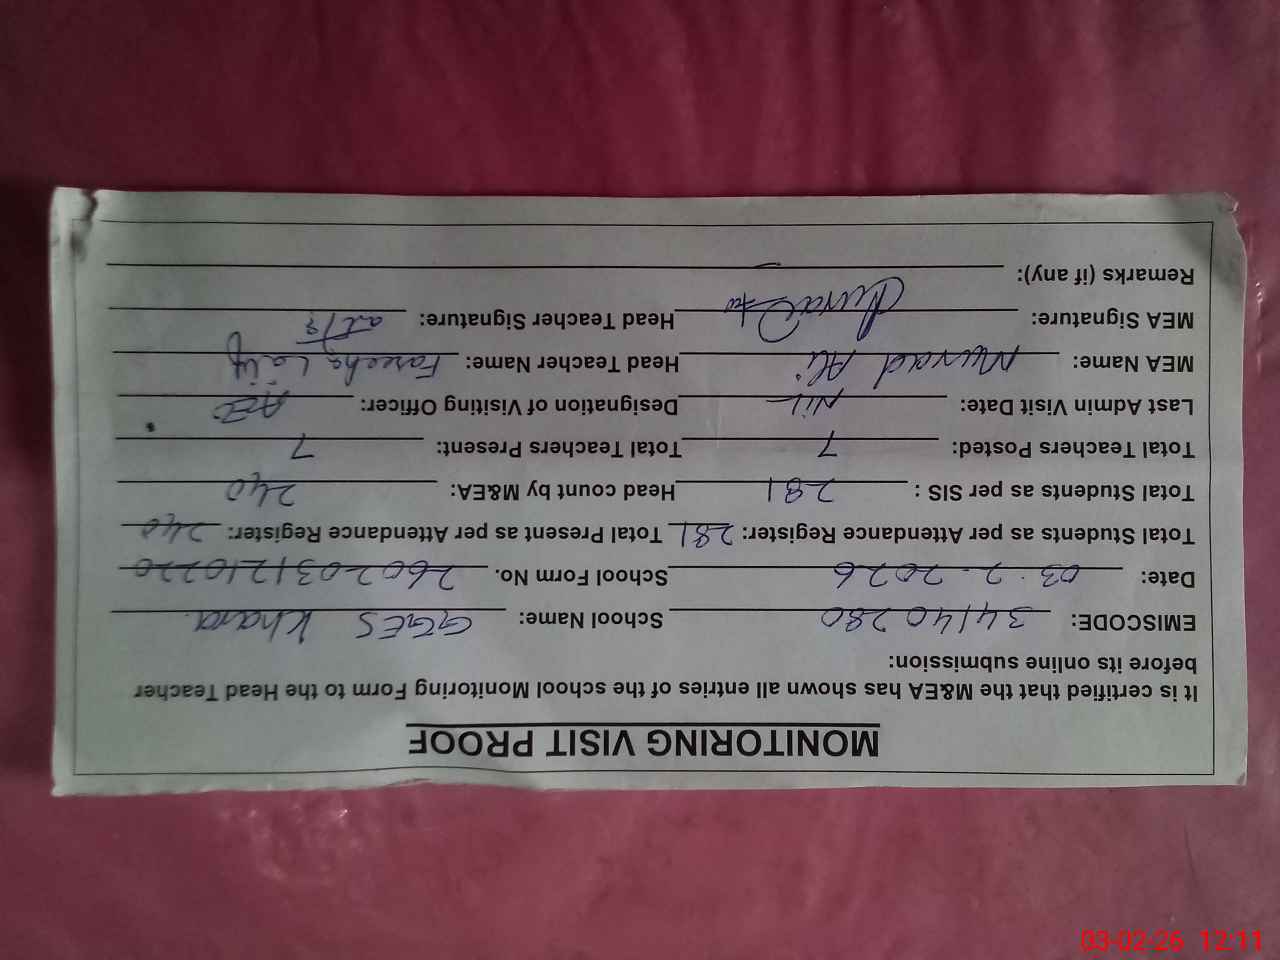 MONITORING VISIT PROOF
It is certified that the M&EA has shown all entries of the school Monitoring Form to the Head Teacher
before its online submission:
EMISCODE: 34140280 School Name: GGES Khara.
Date: 03.2.2026 School Form No. 2602031210220
Total Students as per Attendance Register: 281 Total Present as per Attendance Register: 240
Total Students as per SIS : 281 Head count by M&EA: 240
Total Teachers Posted: 7 Total Teachers Present: 7
Last Admin Visit Date: Nil Designation of Visiting Officer:
MEA Name: Murad Ali Head Teacher Name: Fareeha
MEA Signature: Head Teacher Signature:
Remarks (if any):
03-02-26 12:11